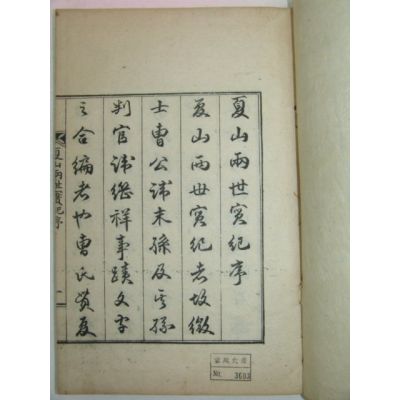 夏山兩世實紀序
夏山兩世實紀者故徵
士曹公諱末孫及其孫
判官諱繼祥事蹟文字
之合編者也曹氏貫夏
夏山兩世實紀序
一
No. 3603